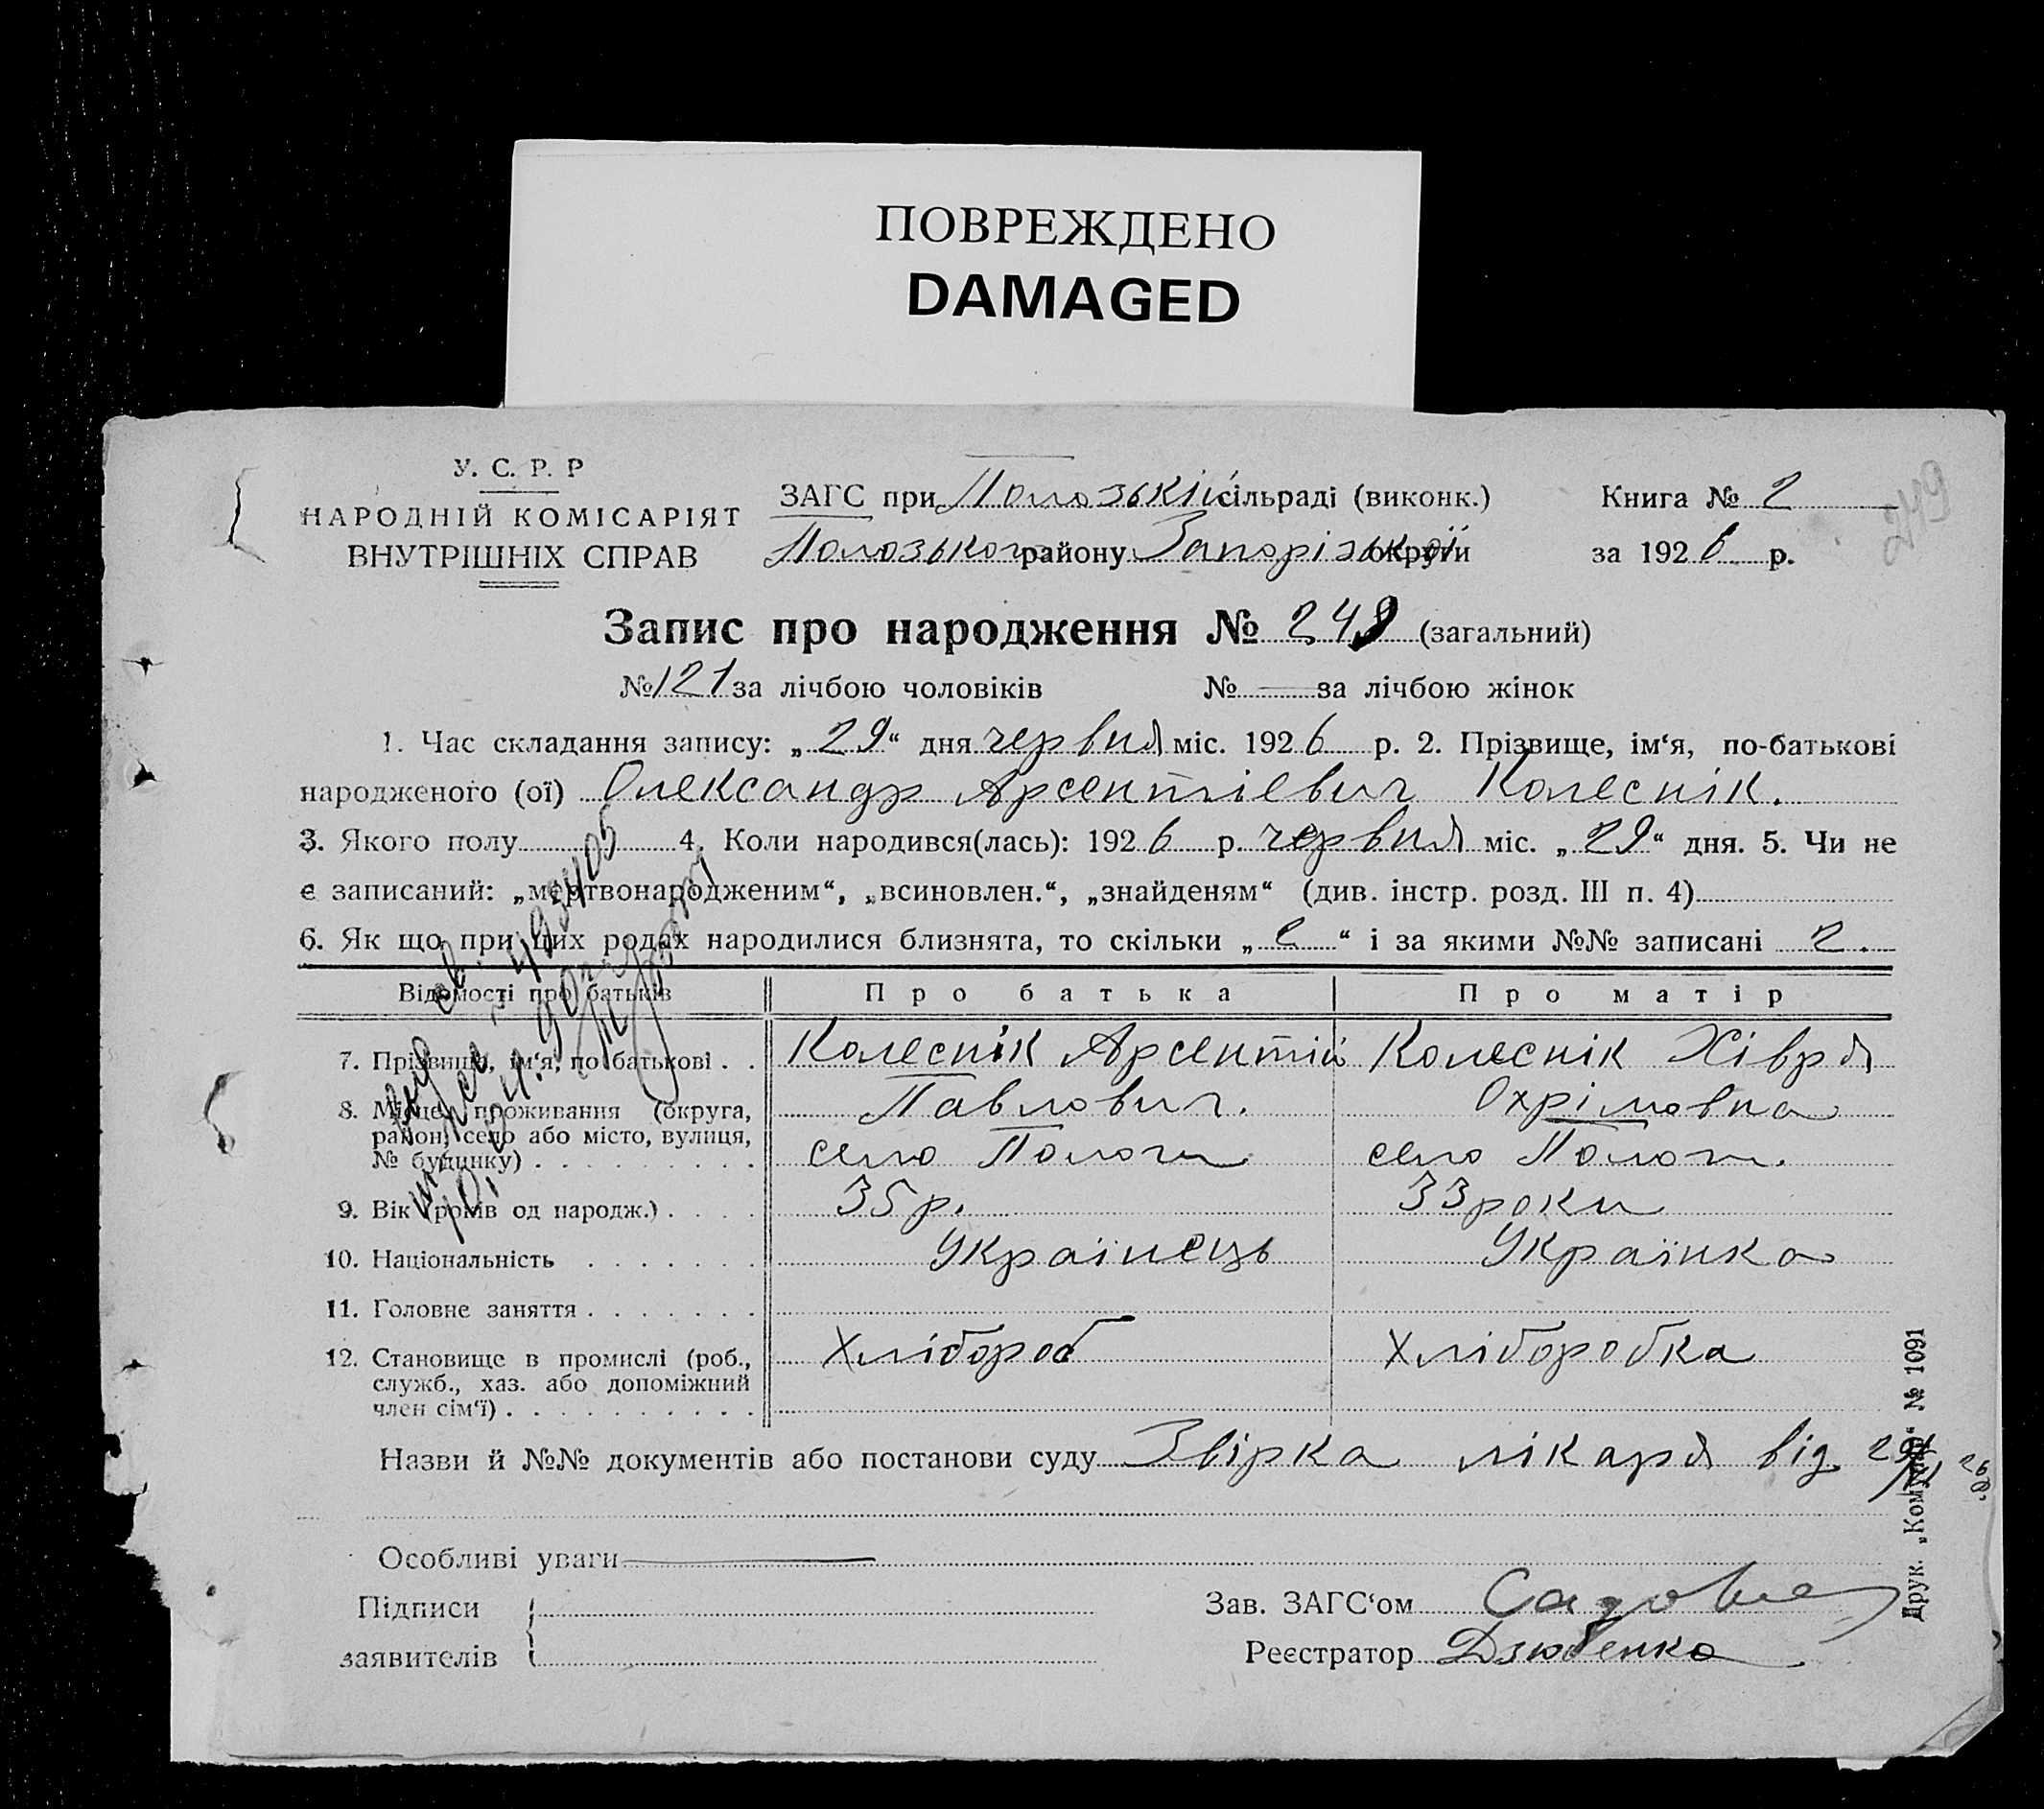 ПОВРЕЖДЕНО
DAMAGED
У. С. Р. Р
НАРОДНІЙ КОМІСАРІЯТ
ВНУТРІШНІХ СПРАВ
ЗАГС при Полозькій сільраді (виконк.)
Полозького району Запорізької округи
Книга № 2
за 1926 р.
249
Запис про народження № 248 (загальний)
№ 121 за лічбою чоловіків № — за лічбою жінок
1. Час складання запису: „29“ дня червня міс. 1926 р. 2. Прізвище, ім‘я, по-батькові
народженого (ої) Олександр Арсентієвич Колеснік.
3. Якого полу 4. Коли народився(лась): 1926 р. червня міс. „29“ дня. 5. Чи не
є записаний: „мертвонародженим“, „всиновлен.“, „знайденям“ (див. інстр. розд. III п. 4)
6. Як що при цих родах народилися близнята, то скільки „ “ і за якими №№ записані
Відомості про батьків Про батька Про матір
7. Прізвище, ім‘я, по-батькові . . Колеснік Арсентій Колеснік Хівря
Павлович. Охрімовна
8. Місце проживання (округа,
район, село або місто, вулиця,
№ будинку) . . . . . . . . . село Пологи село Пологи.
9. Вік (років од народж.) . . . . 35 р. 33 роки
10. Національність . . . . . . Українець Українка
11. Головне заняття . . . . . . .
12. Становище в промислі (роб.,
служб., хаз. або допоміжний
член сім‘ї) . . . . . . . . . . Хлібороб Хліборобка
Назви й №№ документів або постанови суду Звірка лікаря від 29/VI 26 р.
Особливі уваги —
Підписи
заявителів
Зав. ЗАГС‘ом
Реєстратор Дзюбенко
Друк. „Комунар“ № 1091